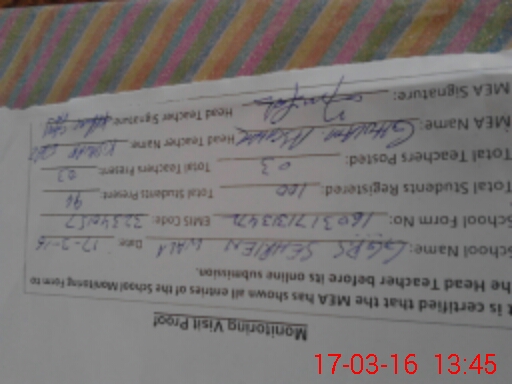 Monitoring Visit Proof
It is certified that the MEA has shown all entries of the School Monitoring Form to
the Head Teacher before its online submission.
School Name: GGPS SEHRIEN WALA Date: 17-2-16
School Form No: EMIS Code: 32340157
Total Students Registered: 100 Total Students Present: 96
Total Teachers Posted: 03 Total Teachers Present: 03
MEA Name: Ghulam Head Teacher Name
MEA Signature: Head Teacher Signature
17-03-16 13:45